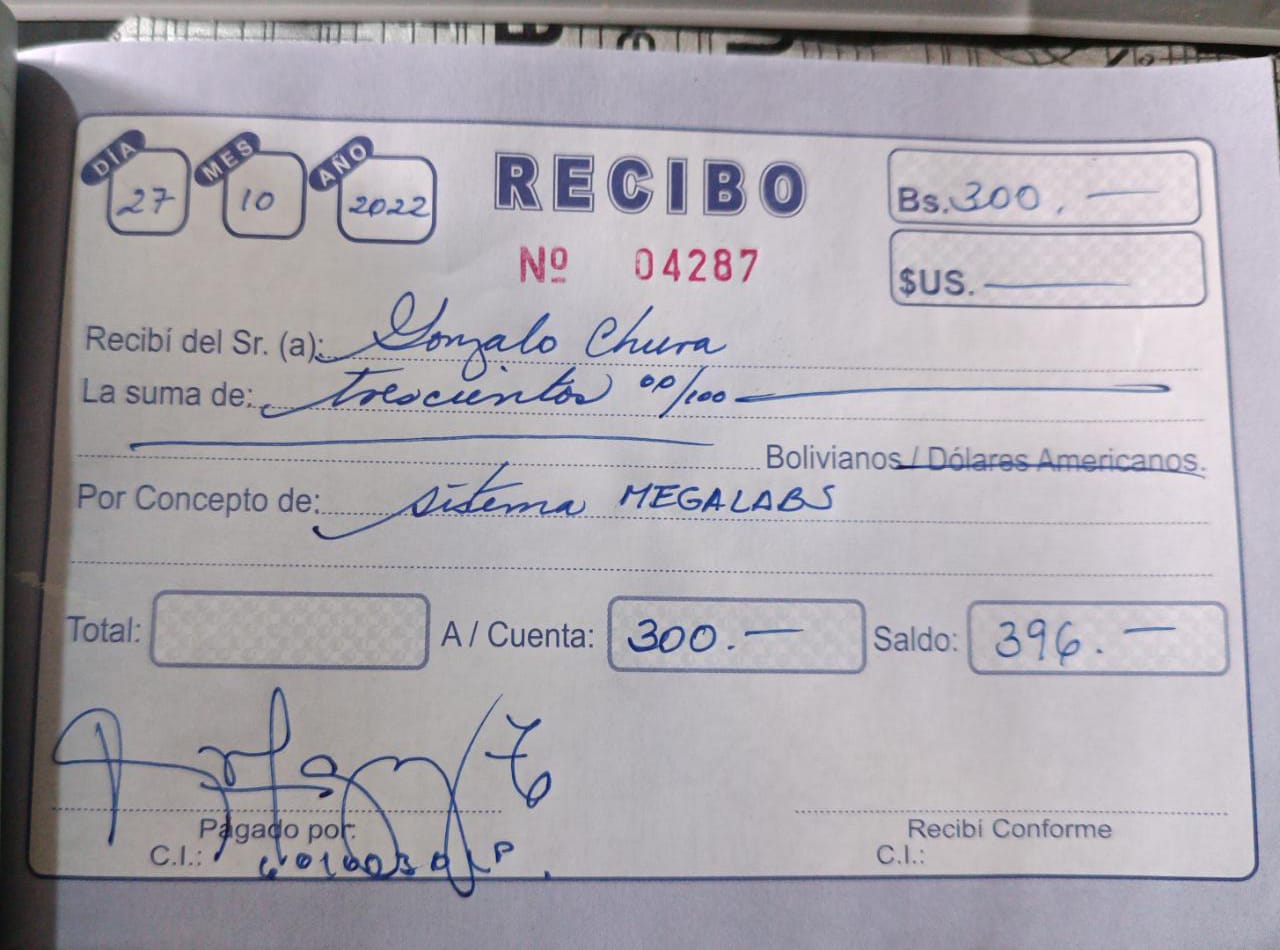 DÍA MES AÑO
27 10 2022
RECIBO
Nº 04287
Bs. 300.—
$US. ——
Recibí del Sr. (a): Gonzalo Chura
La suma de: trescientos 00/100 ——
Bolivianos / Dólares Americanos.
Por Concepto de: sistema MEGALABS
Total: A / Cuenta: 300.— Saldo: 396.—
Pagado por: Recibí Conforme
C.I.: C.I.: